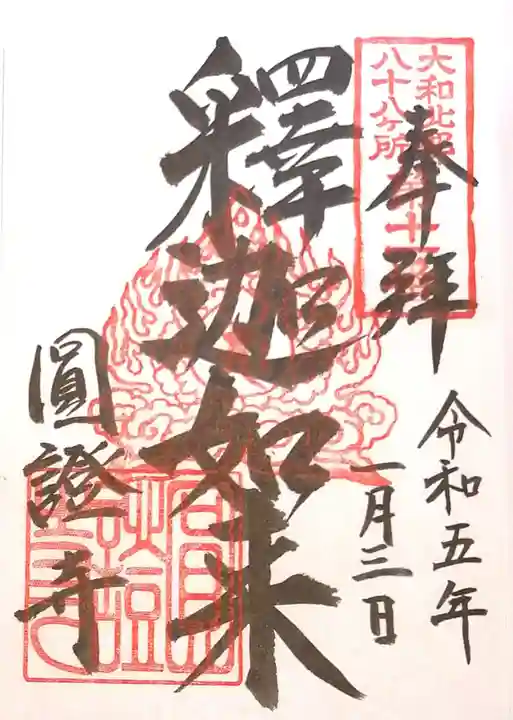 奉拜
大和北部
八十八ヶ所
令和五年
一月三日
釋迦如来
圓證寺